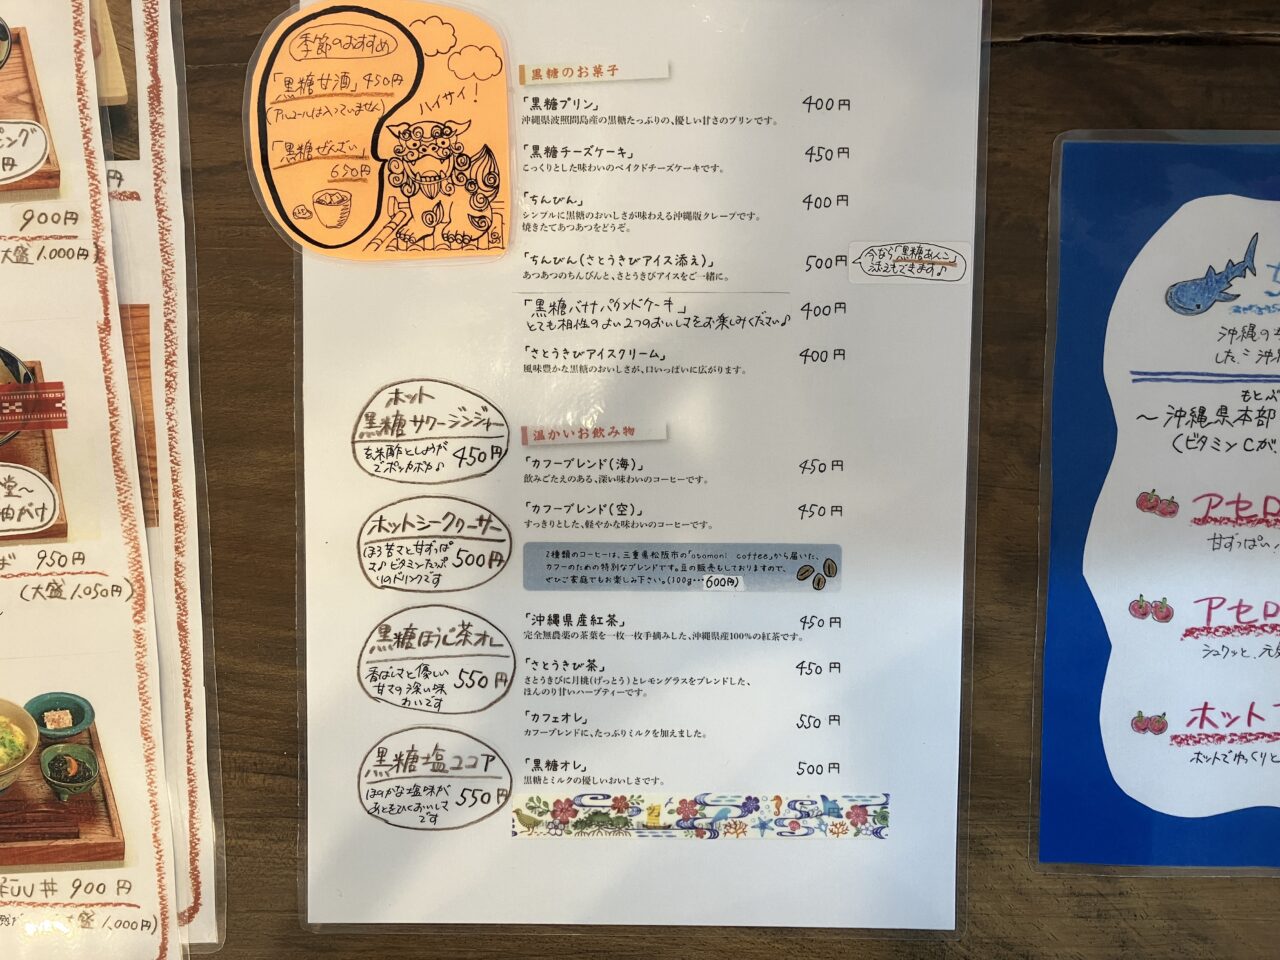 季節のおすすめ
「黒糖甘酒」450円
(アルコールは入っていません)
「黒糖ぜんざい」
650円
ハイサイ!
黒糖のお菓子
「黒糖プリン」 400円
沖縄県波照間島産の黒糖たっぷりの、優しい甘さのプリンです。
「黒糖チーズケーキ」 450円
こっくりとした味わいのベイクドチーズケーキです。
「ちんびん」 400円
シンプルに黒糖のおいしさが味わえる沖縄版クレープです。
焼きたてあつあつをどうぞ。
「ちんびん(さとうきびアイス添え)」 500円
あつあつのちんびんと、さとうきびアイスをご一緒に。
今なら「黒糖あんこ」
添えもできます♪
「黒糖バナナパウンドケーキ」 400円
とても相性のよい2つのおいしさをお楽しみください♪
「さとうきびアイスクリーム」 400円
風味豊かな黒糖のおいしさが、口いっぱいに広がります。
ホット
黒糖サワージンジャー
玄米酢としょうが
でポッカポカ♪
450円
ホットシークヮーサー
ほろ苦さと甘ずっぱ
さ♪ビタミンたっぷ
りのドリンクです
500円
黒糖ほうじ茶オレ
香ばしさと優しい
甘さの深い味
わいです
550円
黒糖塩ココア
ほのかな塩味が
あとをひくおいしさ
です
550円
温かいお飲み物
「カフーブレンド(海)」 450円
飲みごたえのある、深い味わいのコーヒーです。
「カフーブレンド(空)」 450円
すっきりとした、軽やかな味わいのコーヒーです。
2種類のコーヒーは、三重県松阪市の「otomoni coffee」から届いた、
カフーのための特別なブレンドです。豆の販売もしておりますので、
ぜひご家庭でもお楽しみ下さい。(100g…600円)
「沖縄県産紅茶」 450円
完全無農薬の茶葉を一枚一枚手摘みした、沖縄県産100%の紅茶です。
「さとうきび茶」 450円
さとうきびに月桃(げっとう)とレモングラスをブレンドした、
ほんのり甘いハーブティーです。
「カフェオレ」 550円
カフーブレンドに、たっぷりミルクを加えました。
「黒糖オレ」 500円
黒糖とミルクの優しいおいしさです。
ピング
円
900円
大盛1,000円)
堂〜
由がけ
ば 950円
(大盛1,050円)
丼 900円
大盛1,000円)
円
沖縄の
した、
もとぶ
〜沖縄県本部
(ビタミンCが、
アセロ
甘ずっぱい
アセロ
シュワッと、元気
ホット
ホットでゆっくりと